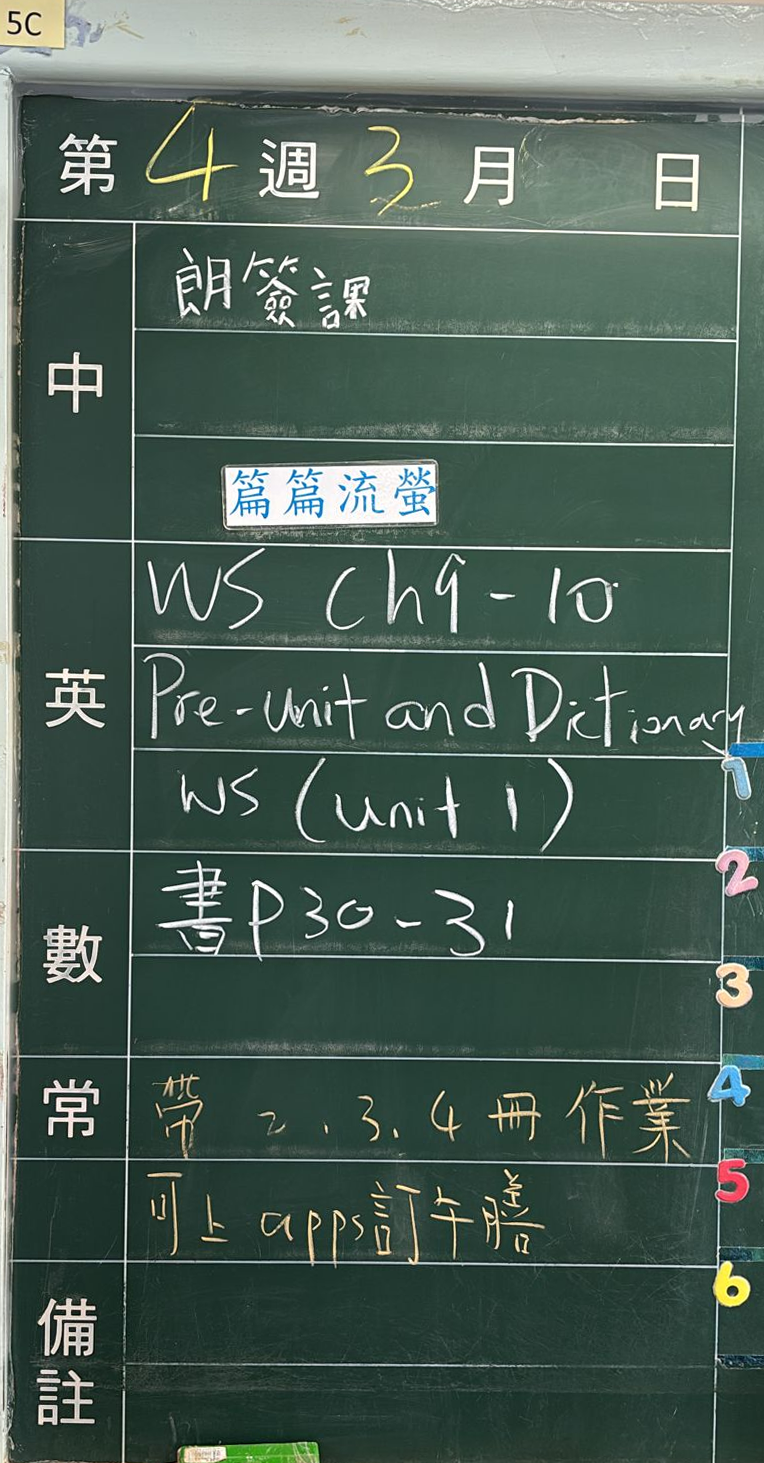 5C
第 4 週 3 月 日
中
朗簽課
篇篇流螢
英
WS Ch9-10
Pre-unit and Dictionary
WS (unit 1)
數
書P30-31
常
帶 2.3.4 冊 作業
可上 apps訂午膳
備註
1
2
3
4
5
6